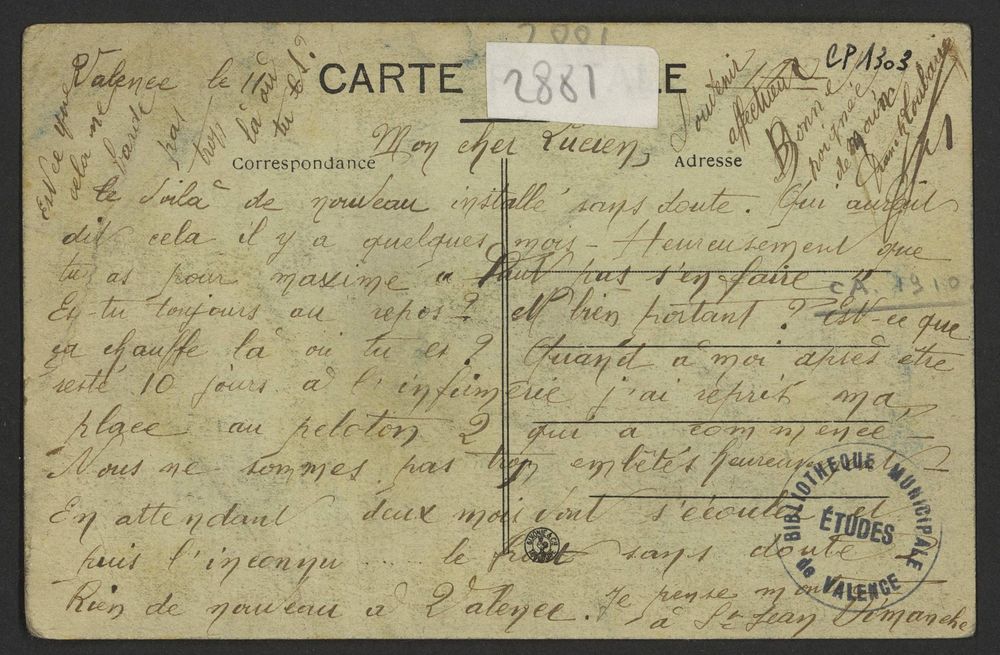 Valence le 11
CARTE
2881
E
CP 1303
Mon cher Lucien,
Correspondance
Adresse
te voilà de nouveau installé sans doute. Qui aurait
dit cela il y a quelques mois - Heureusement que
tu as pour maxime " faut pas s'en faire "
CA. 1910
Es-tu toujours au repos ? et bien portant ? Est-ce que
ça chauffe là où tu es ? Quand à moi après être
resté 10 jours à l'infirmerie j'ai repris ma
place au peloton 2 qui a commencé -
Nous ne sommes pas trop embêtés heureusement -
En attendant deux mois vont s'écouler et
puis l'inconnu .... le front sans doute.
Rien de nouveau à Valence. Je pense monter
à St Jean Dimanche
Est ce que
cela ne
barde
pas
trop
là où
tu es ?
Souvenir
affectueux
Bonne
poignée
de main
BIBLIOTHEQUE MUNICIPALE
ÉTUDES
de VALENCE